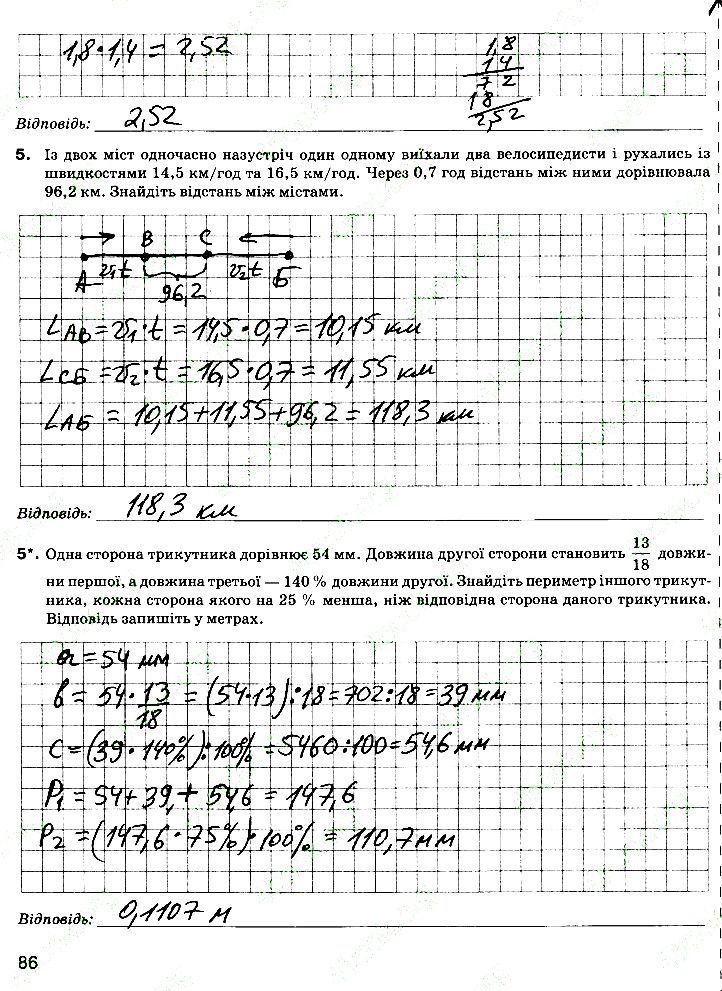 1,8·1,4 = 2,52
1,8
1 4
7 2
1 8
2,52
Відповідь: 2,52
5. Із двох міст одночасно назустріч один одному виїхали два велосипедисти і рухались із
швидкостями 14,5 км/год та 16,5 км/год. Через 0,7 год відстань між ними дорівнювала
96,2 км. Знайдіть відстань між містами.
B C
A v₁t v₂t Б
96,2
L AB = v₁·t = 14,5·0,7 = 10,15 км
L СБ = v₂·t = 16,5·0,7 = 11,55 км
L АБ = 10,15+11,55+96,2 = 118,3 км
Відповідь: 118,3 км
5*. Одна сторона трикутника дорівнює 54 мм. Довжина другої сторони становить 13/18 довжи-
ни першої, а довжина третьої — 140 % довжини другої. Знайдіть периметр іншого трикут-
ника, кожна сторона якого на 25 % менша, ніж відповідна сторона даного трикутника.
Відповідь запишіть у метрах.
a = 54 мм
b = 54·13/18 = (54·13):18 = 702:18 = 39 мм
c = (39·140%):100% = 5460:100 = 54,6 мм
P₁ = 54+39+54,6 = 147,6
P₂ = (147,6·75%)·100% = 110,7 мм
Відповідь: 0,1107 м
86